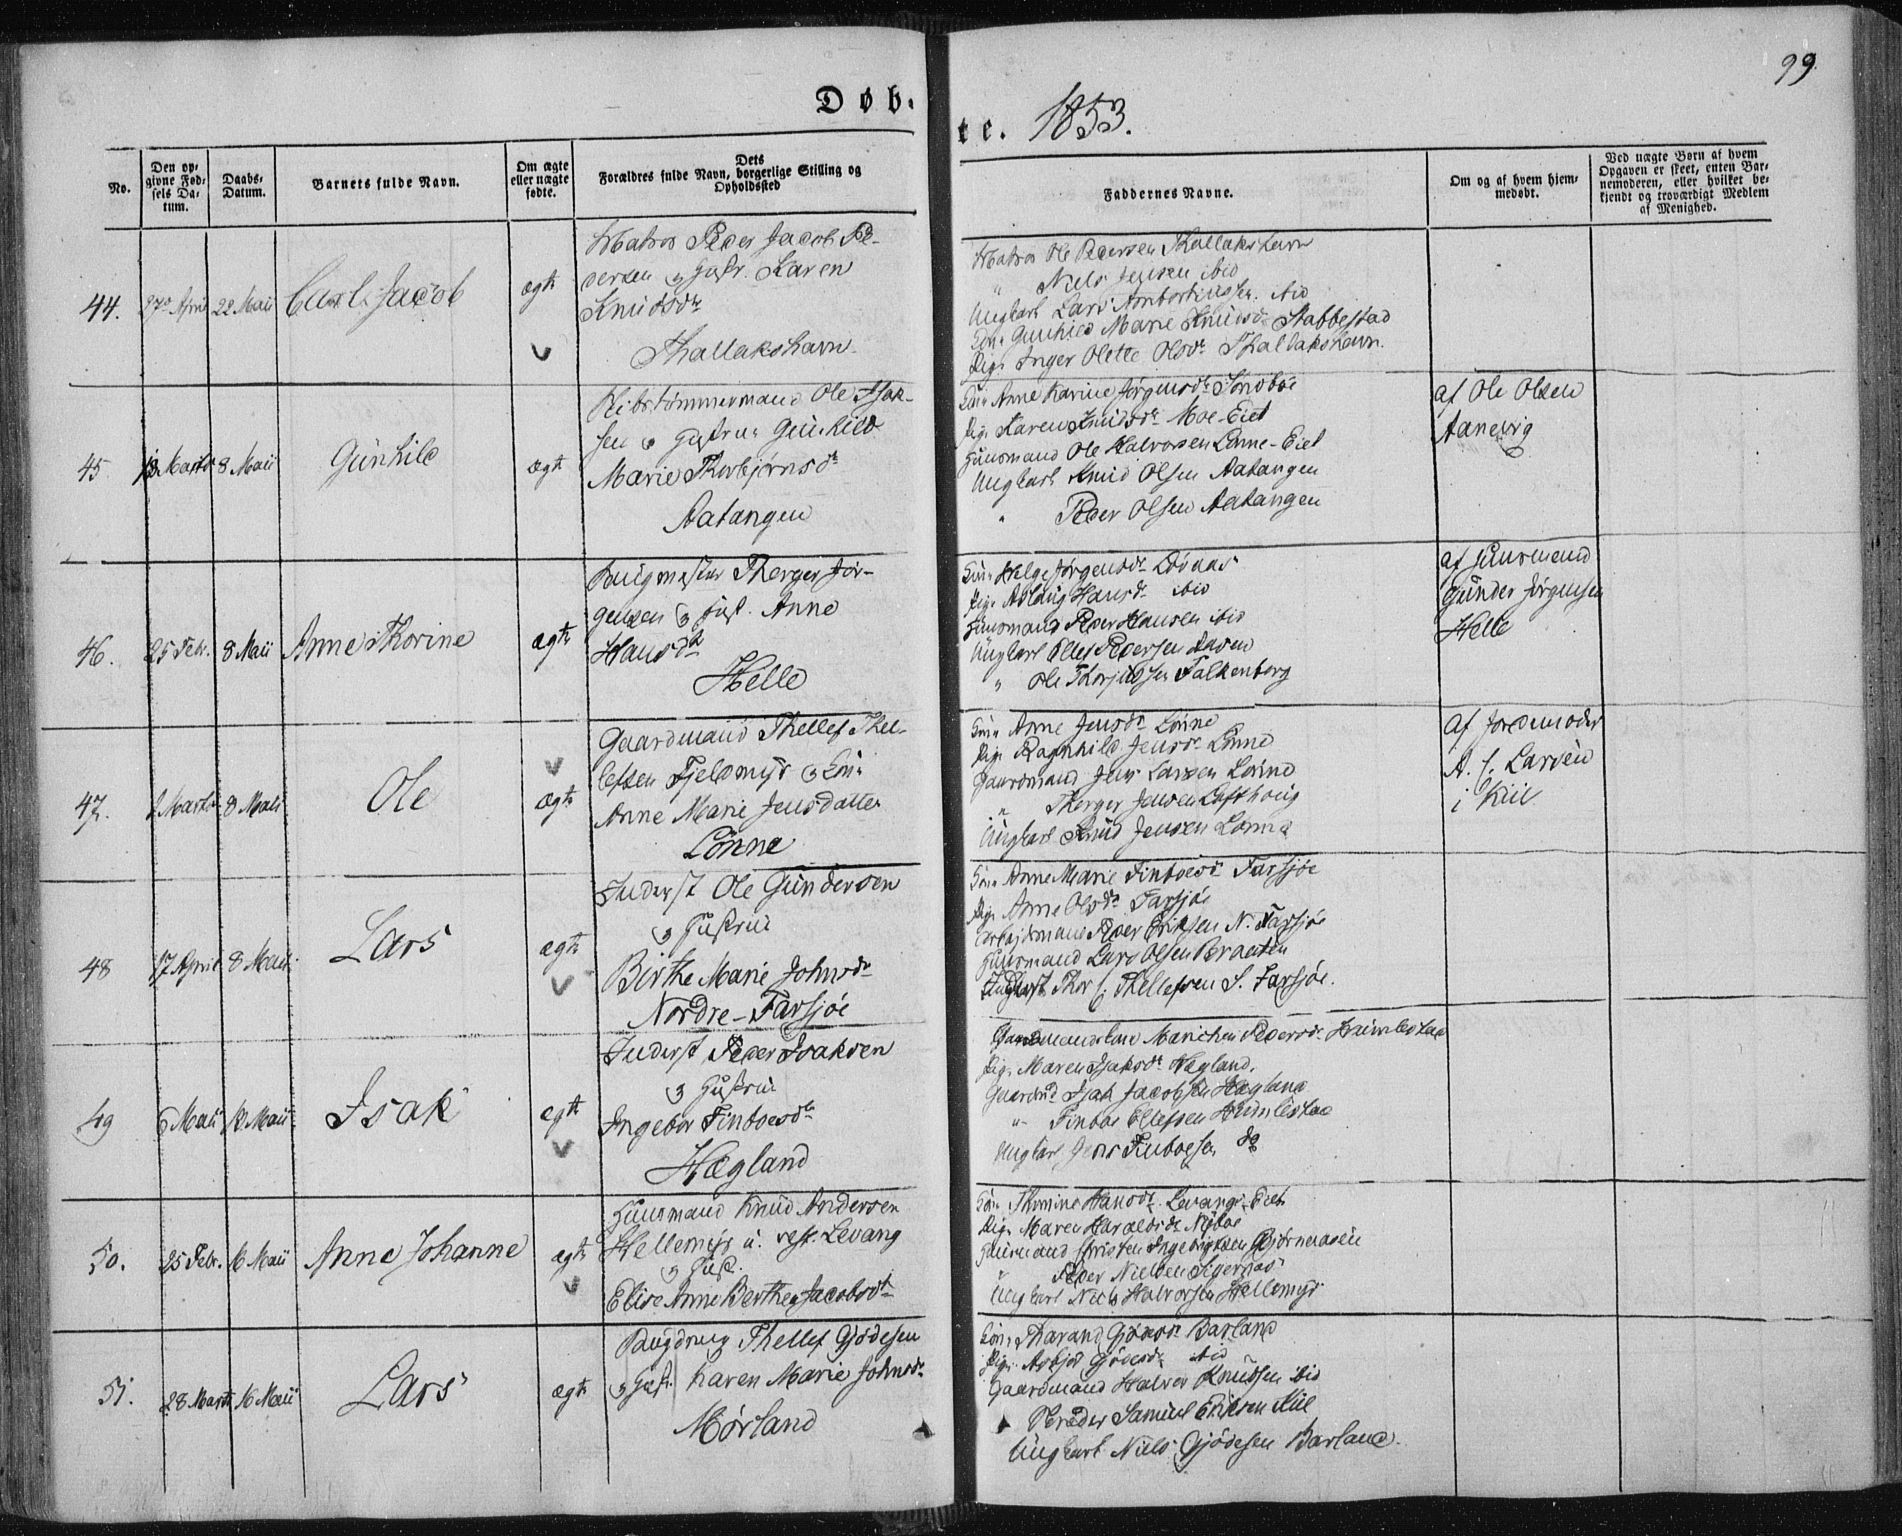 99.
Døb-
te. 1853.
No.
Den op-
givne Fød-
sels Da-
tum.
Daabs-
Datum.
Barnets fulde Navn.
Om ægte
eller uægte
fødte.
Dets
Forældres fulde Navn, borgerlige Stilling og
Opholdssted
Faddernes Navne.
Om og af hvem hjem-
medøbt.
Ved uægte Børn af hvem
Opgaven er skeet, enten Bar-
nemoderen, eller hvilket be-
kjendt og troværdigt Medlem
af Menighed.
44. 27de April 22 Maii Carl Jacob ægte
Matros Peder Jacob Pe-
dersen & Hustr. Karen
Knudsdr
Thallakshavn.
Matros Ole Pedersen Thallakshavn
" Niels Jensen ibid
Ungkarl Lars ibid
Kone Gunhild Marie Knudsdr Stabbestad
Pige Inger Olette Olsdr Thallakshavn.
45. Martii 8 Maii Gunhild ægte
Skibstømmermand Ole Isak-
sen & Hustrue Gunhild
Marie Thorbjørnsdr
Aatangen
Kone Anne Karine Jørgensdr
Pige Karen Knudsdr Moe-Eiet
Huusmand Ole Halvorsen Lønne-Eiet
Ungkarl Knud Olsen Aatangen
" Peder Olsen Aatangen
af Ole Olsen
Aanevig
46. 25 Febr. 8 Maii Anne Thorine ægte
Therger Jør-
gensen & Hust. Anne
Hansdr
Helle
Kone Helge Jørgensdr
Pige Aslaug Hansdr ibid
Huusmand Peder Hansen ibid
Ungkarl Ellef Pedersen
" Ole Falkenborg
af Huusmand
Gunder Jørgensen
Helle
47. Martii 8 Maii Ole ægte
Gaardmand Thellef Thel-
lefsen Fjeldmyr & Kone
Anne Marie Jensdatter
Lønne
Kone Anne Jensdr Lønne
Pige Ragnhild Jensdr Lønne
Gaardmand Jens Larsen Lønne
" Therger Jensen Lofthoug
Ungkarl Knud Jensen Lønne
af Jordemoder
A. C. Larsen
i Kiil
48 17 April 8 Maii Lars ægte
Inderst Ole Gundersen
& Hustrue
Birthe Marie Johnsdr
Nordre-Farsjøe
Kone Anne Marie Finboesdr Farsjøe
Pige Anne Olsdr Farsjøe
Arbejdsmand Peder Eriksen N. Farsjøe
Huusmand Lars Olsen Braaten
Thor C. Thellefsen S. Farsjøe.
49 6 Maii Maii Isak ægte
Inderst Peder Isaksen
& Hustrue
Ingebor Finboesdr
Hægland
Gaardmandskone Marichen Pedersdr Humlestad
Pige Maren Isaksdr Hægland.
Gaardmd Isak Jacobsen Hægland
" Finboe Ellefsen Humlestad
Ungkarl Jens Finboesen do
50. 25 Febr. 16 Maii Anne Johanne ægte
Huusmand Knud Andersen
Hellemyr u. vest. Levang
& Hust.
Elise Anne Berthea Jacobsdr
Kone Thomine Hansdr Levangs-Eiet
Pige Maren Haralsdr Nyboe
Huusmand Christen Ingebrigtsen Bjørneraasen
" Peder Nielsen
Ungkarl Niels Halvorsen Hellemyr
51. 28 Martii 16 Maii Lars ægte
Thellef Gjødesen
& Hust. Karen Marie Johnsdr
Mørland
Kone Tharand Gjødesdr Barland
Pige Asbjør Gjødesdr ibid
Gaardmand Halvor Knudsen ibid
Samuel Eriksen Kiil
Ungkarl Niels Gjødesen Barland.